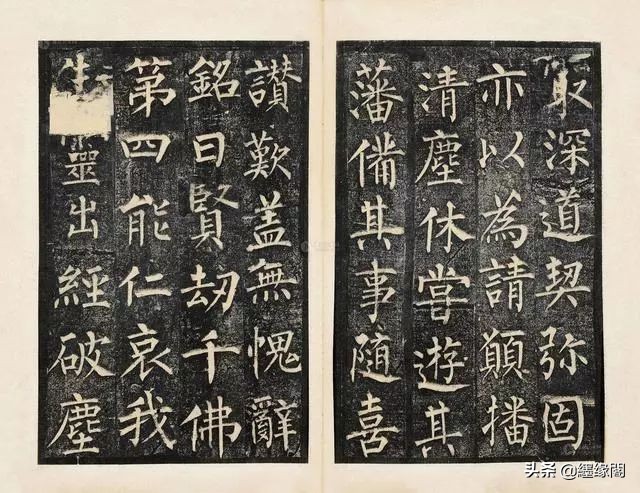 最深道契弥固
亦以為請願播
清塵休嘗遊其
藩備其事随喜
讃歎盖無愧辭
銘曰賢劫千佛
第四能仁哀我
生靈出經破塵
头条 @纆缘閣